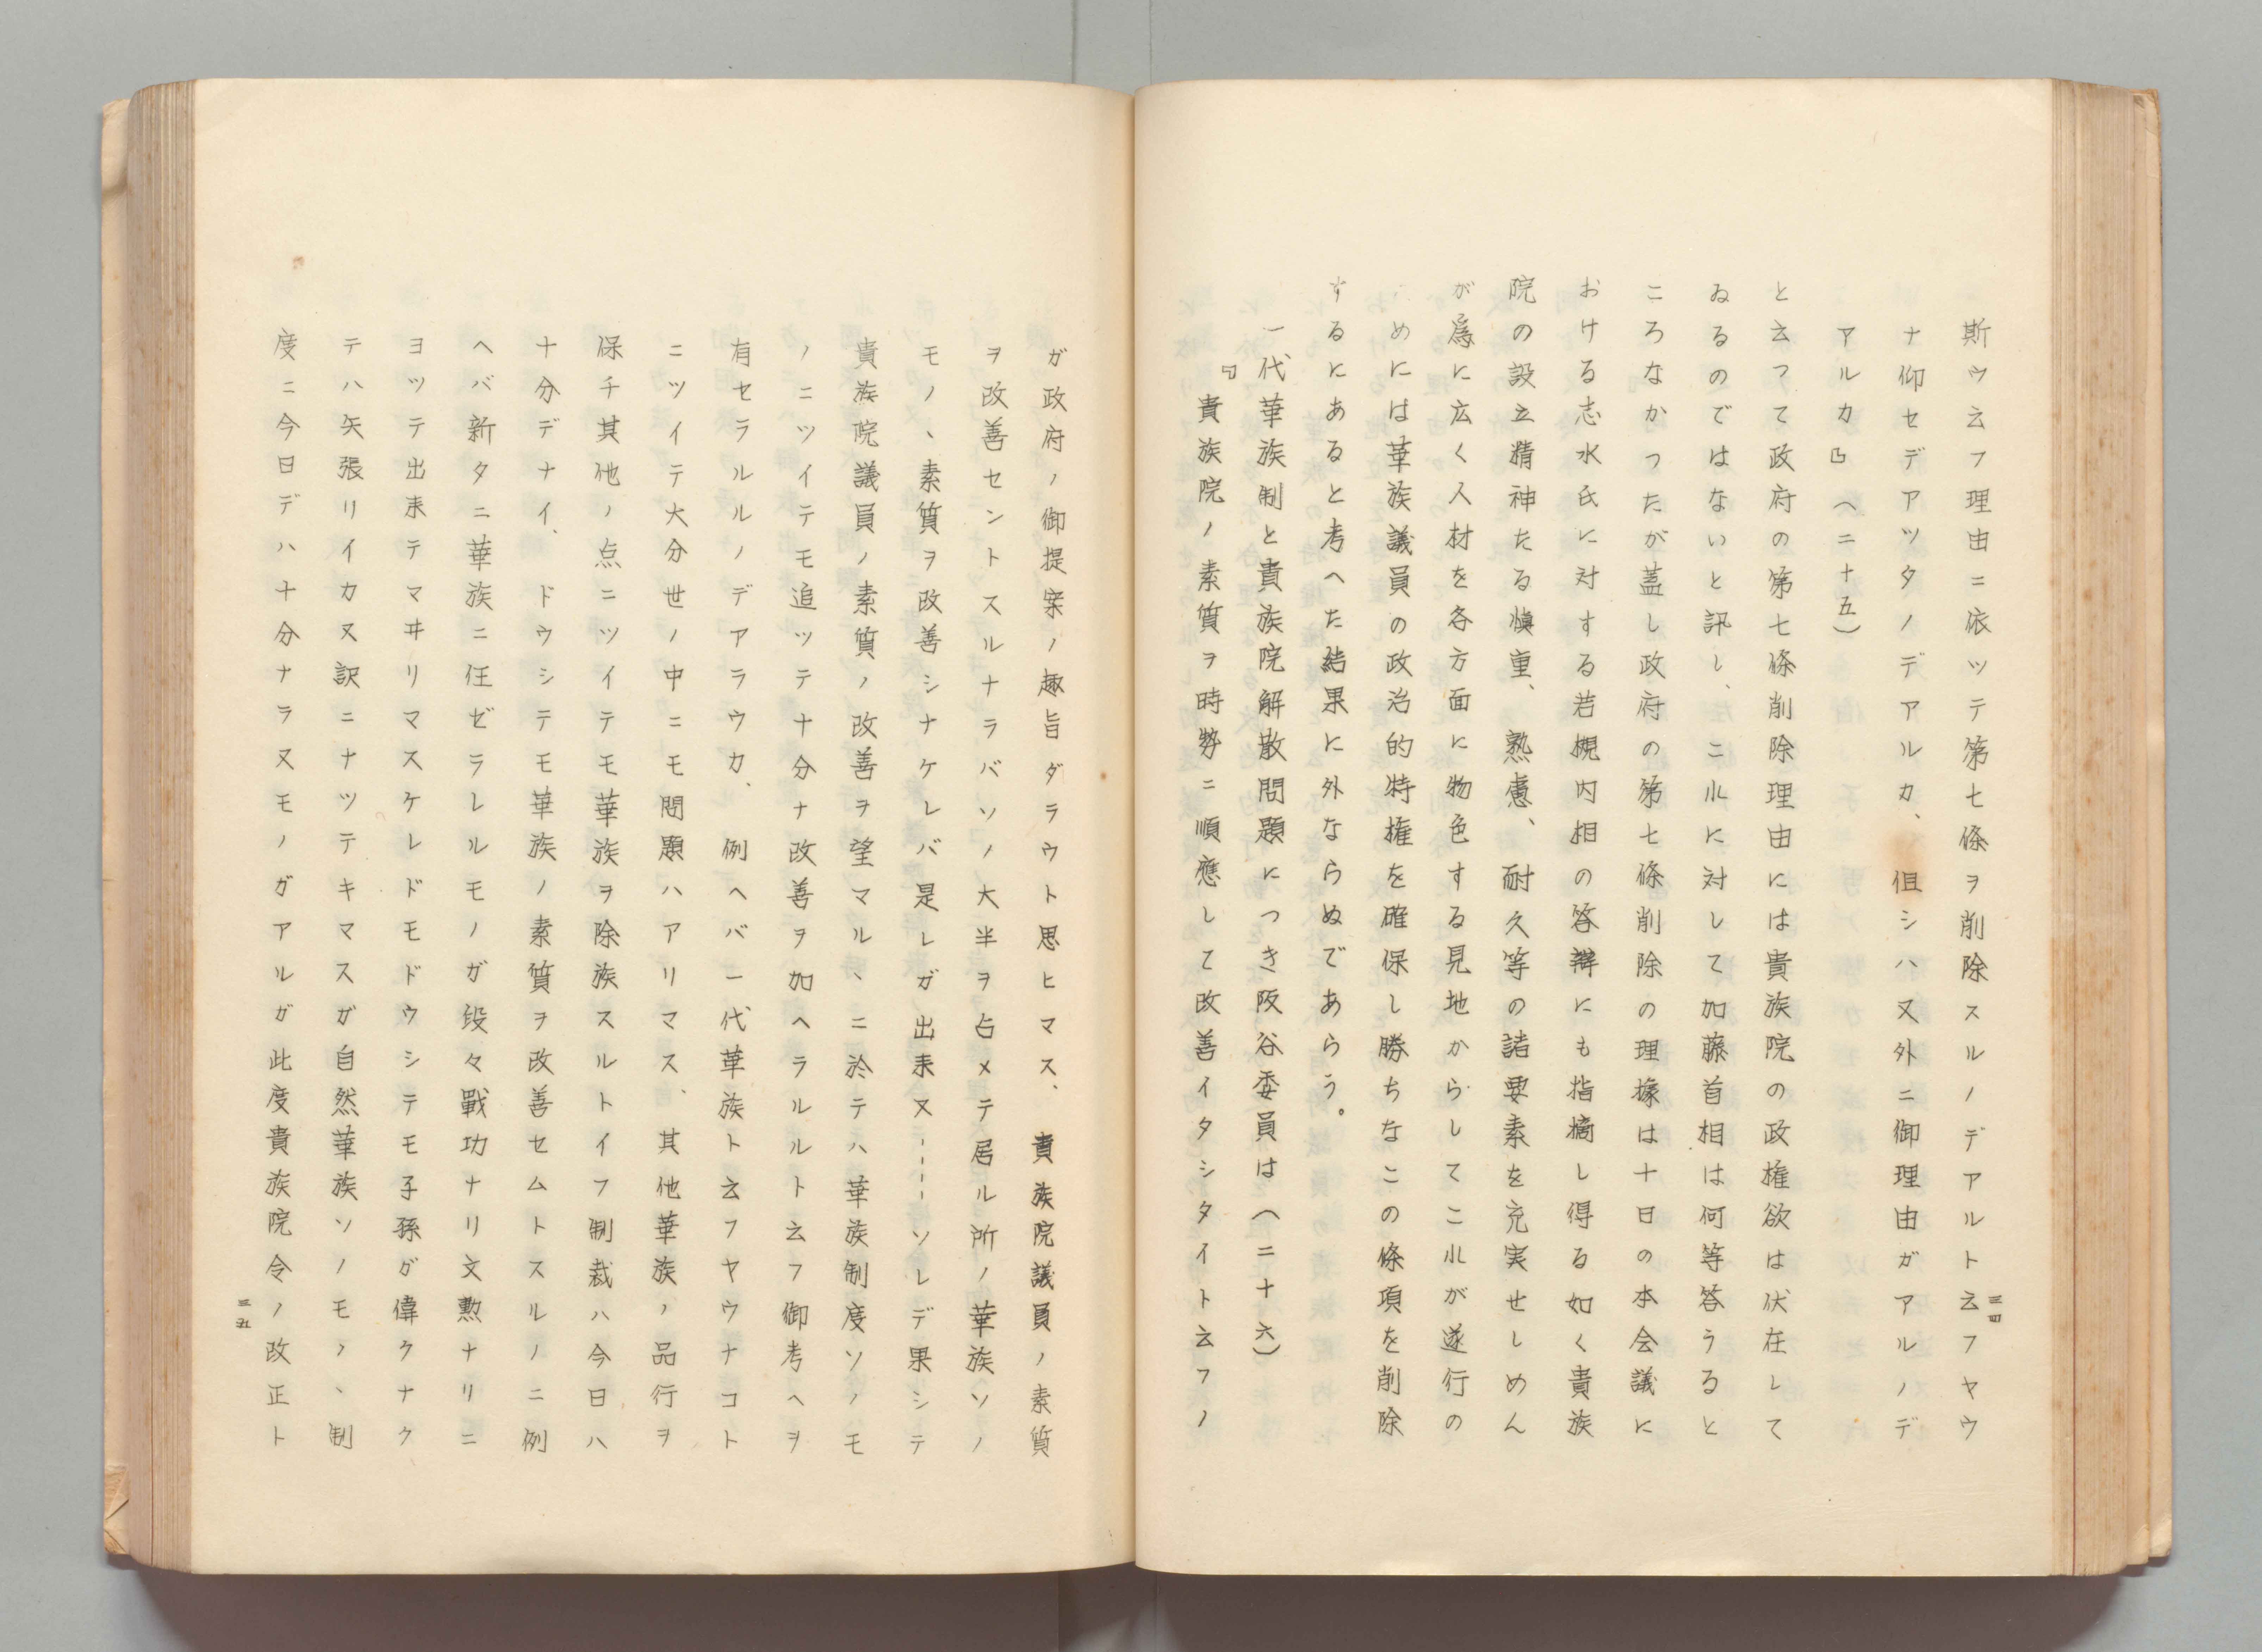 三四
斯ウ云フ理由ニ依ツテ第七條ヲ削除スルノデアルト云フヤウ
ナ仰セデアツタノデアルカ、但シハ又外ニ御理由ガアルノデ
アルカ』（二十五）
と云つて政府の第七條削除理由には貴族院の政権欲は伏在して
ゐるのではないと訊し、これに対して加藤首相は何等答うると
ころなかつたが蓋し政府の第七條削除の理據は十日の本会議に
おける志水氏に対する若槻内相の答辯にも指摘し得る如く貴族
院の設立精神たる愼重、熟慮、耐久等の諸要素を充実せしめん
が爲に広く人材を各方面に物色する見地からしてこれが遂行の
めには華族議員の政治的特権を確保し勝ちなこの條項を削除
するにあると考へた結果に外ならぬであらう。
一代華族制と貴族院解散問題につき阪谷委員は（二十六）
『貴族院ノ素質ヲ時勢ニ順應して改善イタシタイト云フノ
ガ政府ノ御提案ノ趣旨ダラウト思ヒマス、貴族院議員ノ素質
ヲ改善セントスルナラバソノ大半ヲ占メテ居ル所ノ華族ソノ
モノヽ素質ヲ改善シナケレバ是レガ出来ヌ----ソレデ果シテ
貴族院議員ノ素質ノ改善ヲ望マルヽニ於テハ華族制度ソノモ
ノニツイテモ追ツテ十分ナ改善ヲ加ヘラルルト云フ御考ヘヲ
有セラルルノデアラウカ、例ヘバ一代華族ト云フヤウナコト
ニツイテ大分世ノ中ニモ問題ハアリマス、其他華族ノ品行ヲ
保チ其他ノ点ニツイテモ華族ヲ除族スルトイフ制裁ハ今日ハ
十分デナイ、ドウシテモ華族ノ素質ヲ改善セムトスルノニ例
ヘバ新タニ華族ニ任ゼラレルモノガ段々戰功ナリ文勲ナリニ
ヨツテ出来テマヰリマスケレドモドウシテモ子孫ガ偉クナク
テハ矢張リイカヌ訳ニナツテキマスガ自然華族ソノモノヽ制
度ニ今日デハ十分ナラヌモノガアルガ此度貴族院令ノ改正ト
三五